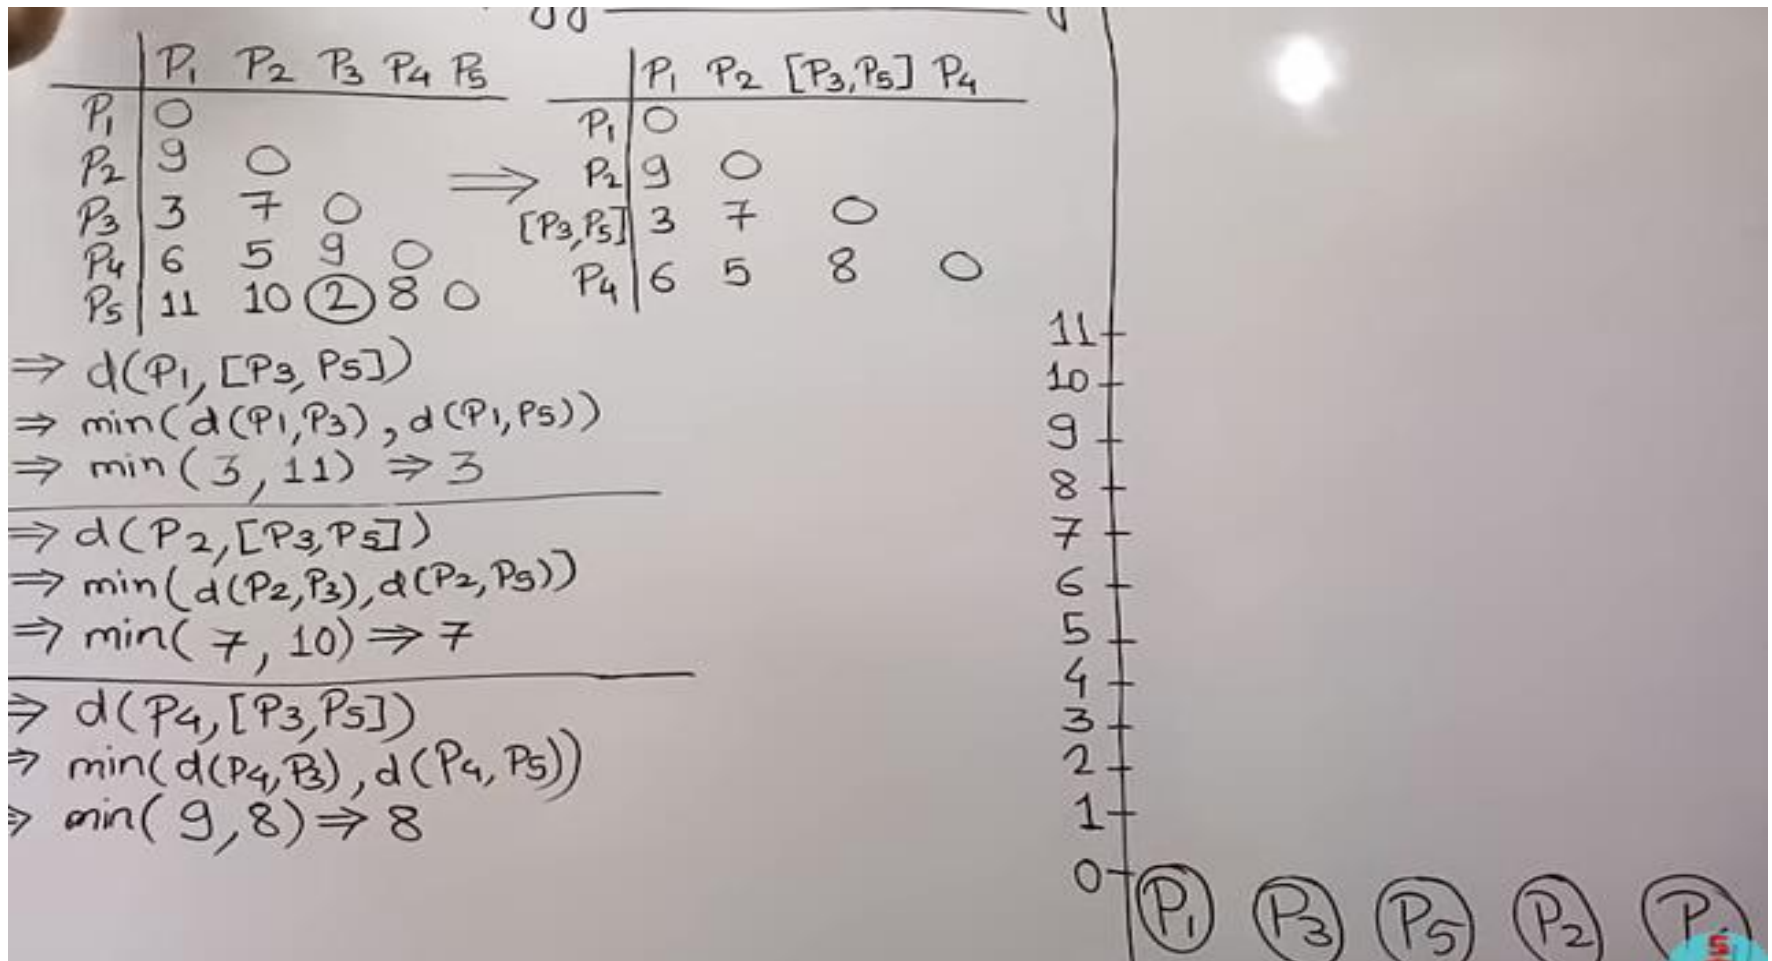 P1 P2 P3 P4 P5
P1 0
P2 9 0
P3 3 7 0
P4 6 5 9 0
P5 11 10 2 8 0
⇒
P1 P2 [P3,P5] P4
P1 0
P2 9 0
[P3,P5] 3 7 0
P4 6 5 8 0
⇒ d(P1, [P3, P5])
⇒ min(d(P1,P3), d(P1,P5))
⇒ min(3, 11) ⇒ 3
⇒ d(P2,[P3,P5])
⇒ min(d(P2,P3),d(P2,P5))
⇒ min(7, 10) ⇒ 7
⇒ d(P4,[P3,P5])
⇒ min(d(P4,P3),d(P4,P5))
⇒ min(9,8) ⇒ 8
11
10
9
8
7
6
5
4
3
2
1
0
P1 P3 P5 P2